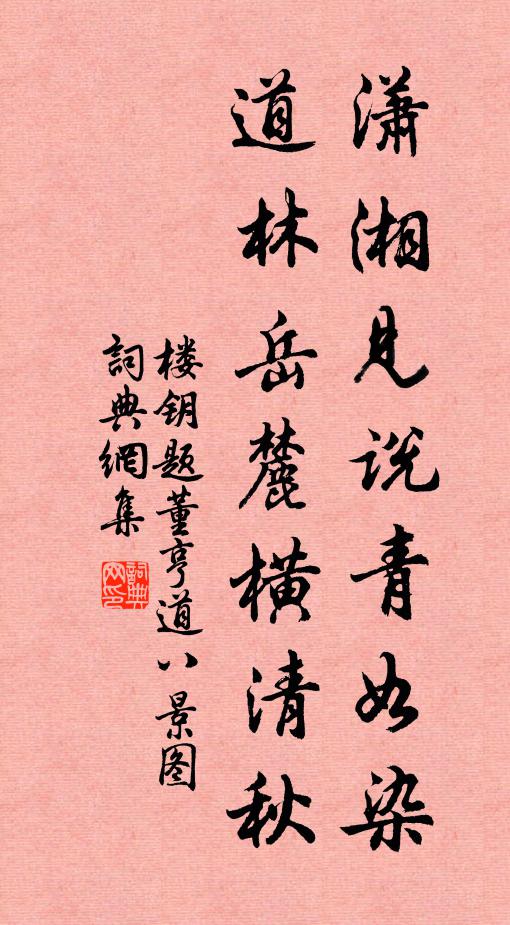 瀟湘見説青如染
道林岳麓橫清秋
楼钥题董亨道八景图
詞典網集
詞典網印